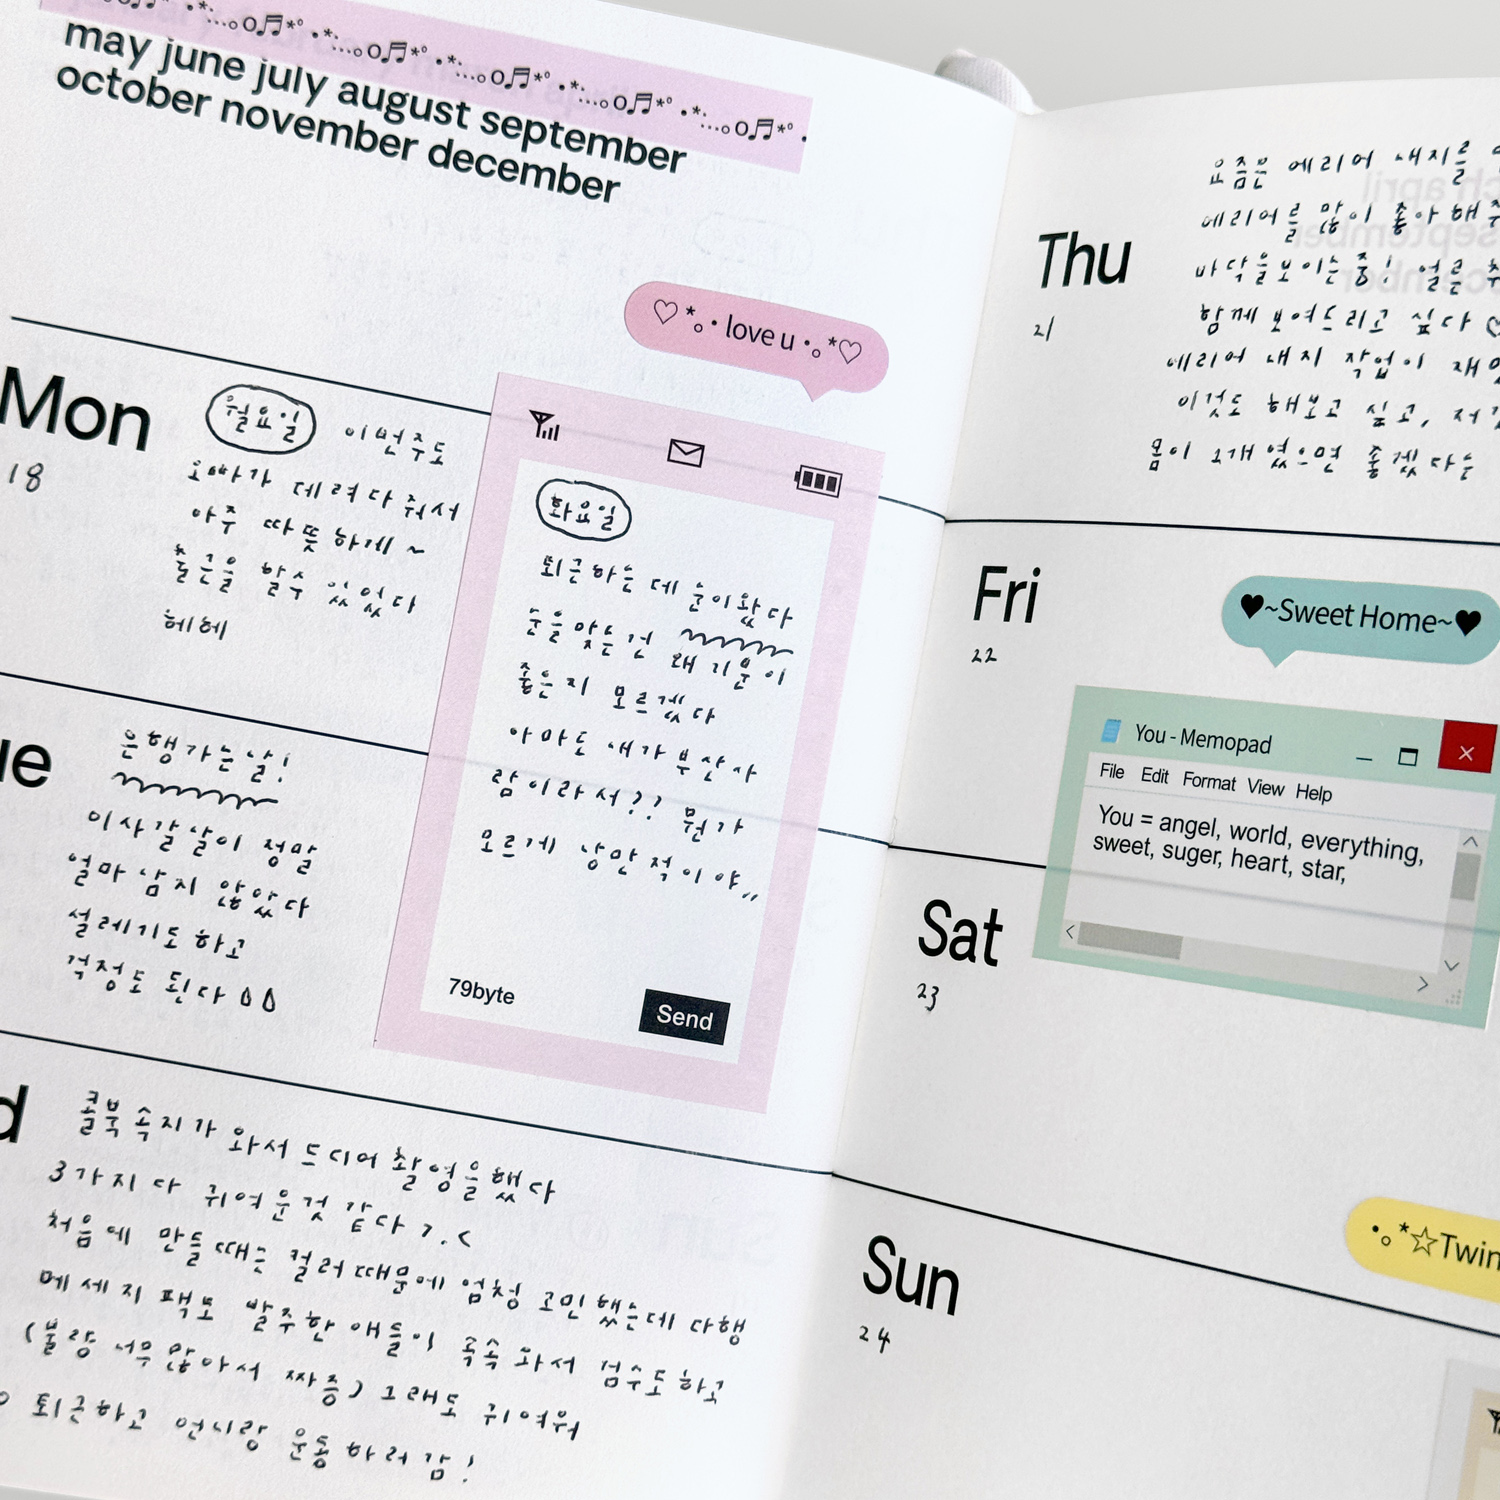 may june july august september
october november december
♡ *。• love u •。*♡
Mon
18
월요일 이번주도
오빠가 데려다줘서
아주 따뜻하게 ~
출근을 할수 있었다
헤헤
화요일
퇴근하는데 눈이왔다
눈을 맞는건 왜 기분이
좋은지 모르겠다
아마도 내가 부산사
람이라서?? 뭔가
모르게 낭만적이야,,
79byte
Send
ue
은행가는날!
이사갈날이 정말
얼마 남지 않았다
설레기도 하고
걱정도 된다
d
콜북 속지가 와서 드디어 촬영을 했다
3가지 다 귀여운것 같다 >.<
처음에 만들때는 컬러때문에 엄청 고민했는데 다행
메세지팩도 발주한 애들이 속속 와서 검수도 하고
(불량 너무 많아서 짜증) 그래도 귀여워
퇴근하고 언니랑 운동하러감!
Thu
21
요즘은 에리어 내지를
에리어를 많이 좋아해주
바닥을보이는중! 얼른
함께 보여드리고 싶다 ♡
에리어 내지 작업이 재
이것도 해보고 싶고, 저
몸이 2개였으면 좋겠다는
Fri
22
♥~Sweet Home~♥
You - Memopad
File Edit Format View Help
You = angel, world, everything,
sweet, suger, heart, star,
Sat
23
•。*☆Twin
Sun
24